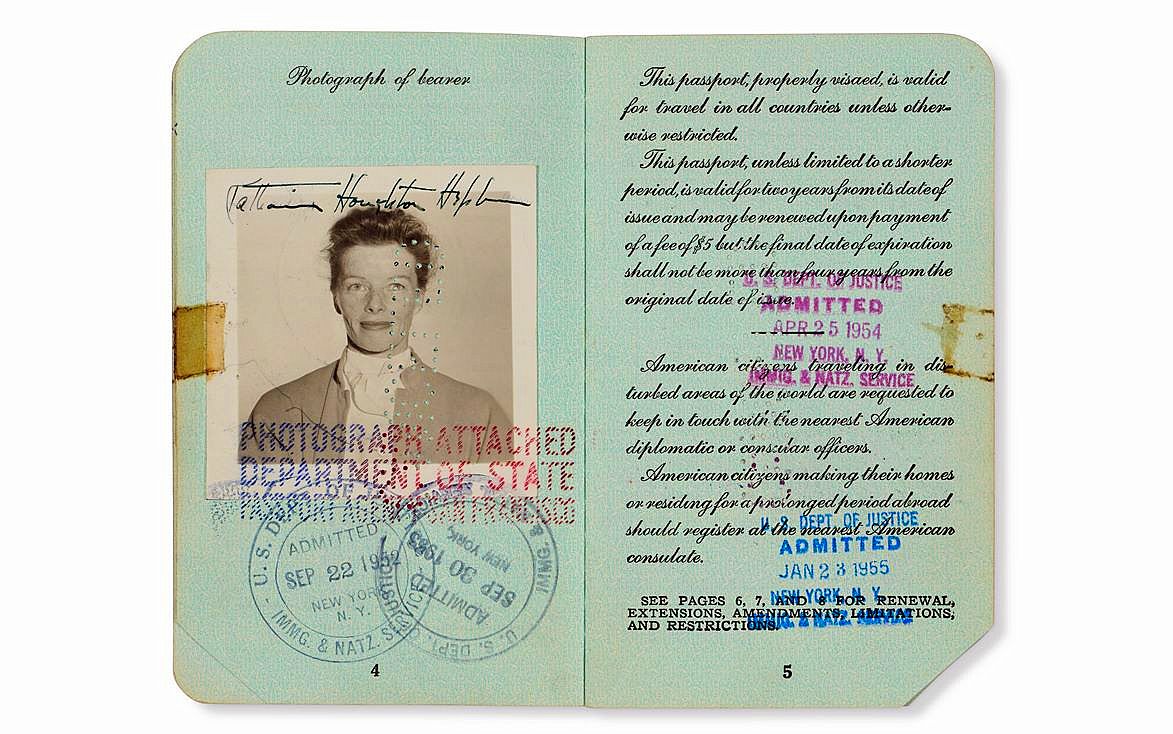 Photograph of bearer
Katharine Houghton Hepburn
PHOTOGRAPH ATTACHED
DEPARTMENT OF STATE
PASSPORT AGENCY SAN FRANCISCO
ADMITTED
SEP 22 1952
NEW YORK
N. Y.
IMMG. & NATZ. SERVICE
ADMITTED
SEP 30 1953
NEW YORK
4
This passport, properly visaed, is valid
for travel in all countries unless other-
wise restricted.
This passport, unless limited to a shorter
period, is valid for two years from its date of
issue and may be renewed upon payment
of a fee of $5 but the final date of expiration
shall not be more than four years from the
original date of issue.
U. S. DEPT. OF JUSTICE
ADMITTED
APR 25 1954
NEW YORK, N. Y.
IMMIG. & NATZ. SERVICE
American citizens traveling in dis-
turbed areas of the world are requested to
keep in touch with the nearest American
diplomatic or consular officers.
American citizens making their homes
or residing for a prolonged period abroad
should register at the nearest American
consulate.
U. S. DEPT. OF JUSTICE
ADMITTED
JAN 23 1955
NEW YORK, N. Y.
IMMIG. & NATZ. SERVICE
SEE PAGES 6, 7, AND 8 FOR RENEWAL,
EXTENSIONS, AMENDMENTS, LIMITATIONS,
AND RESTRICTIONS.
5